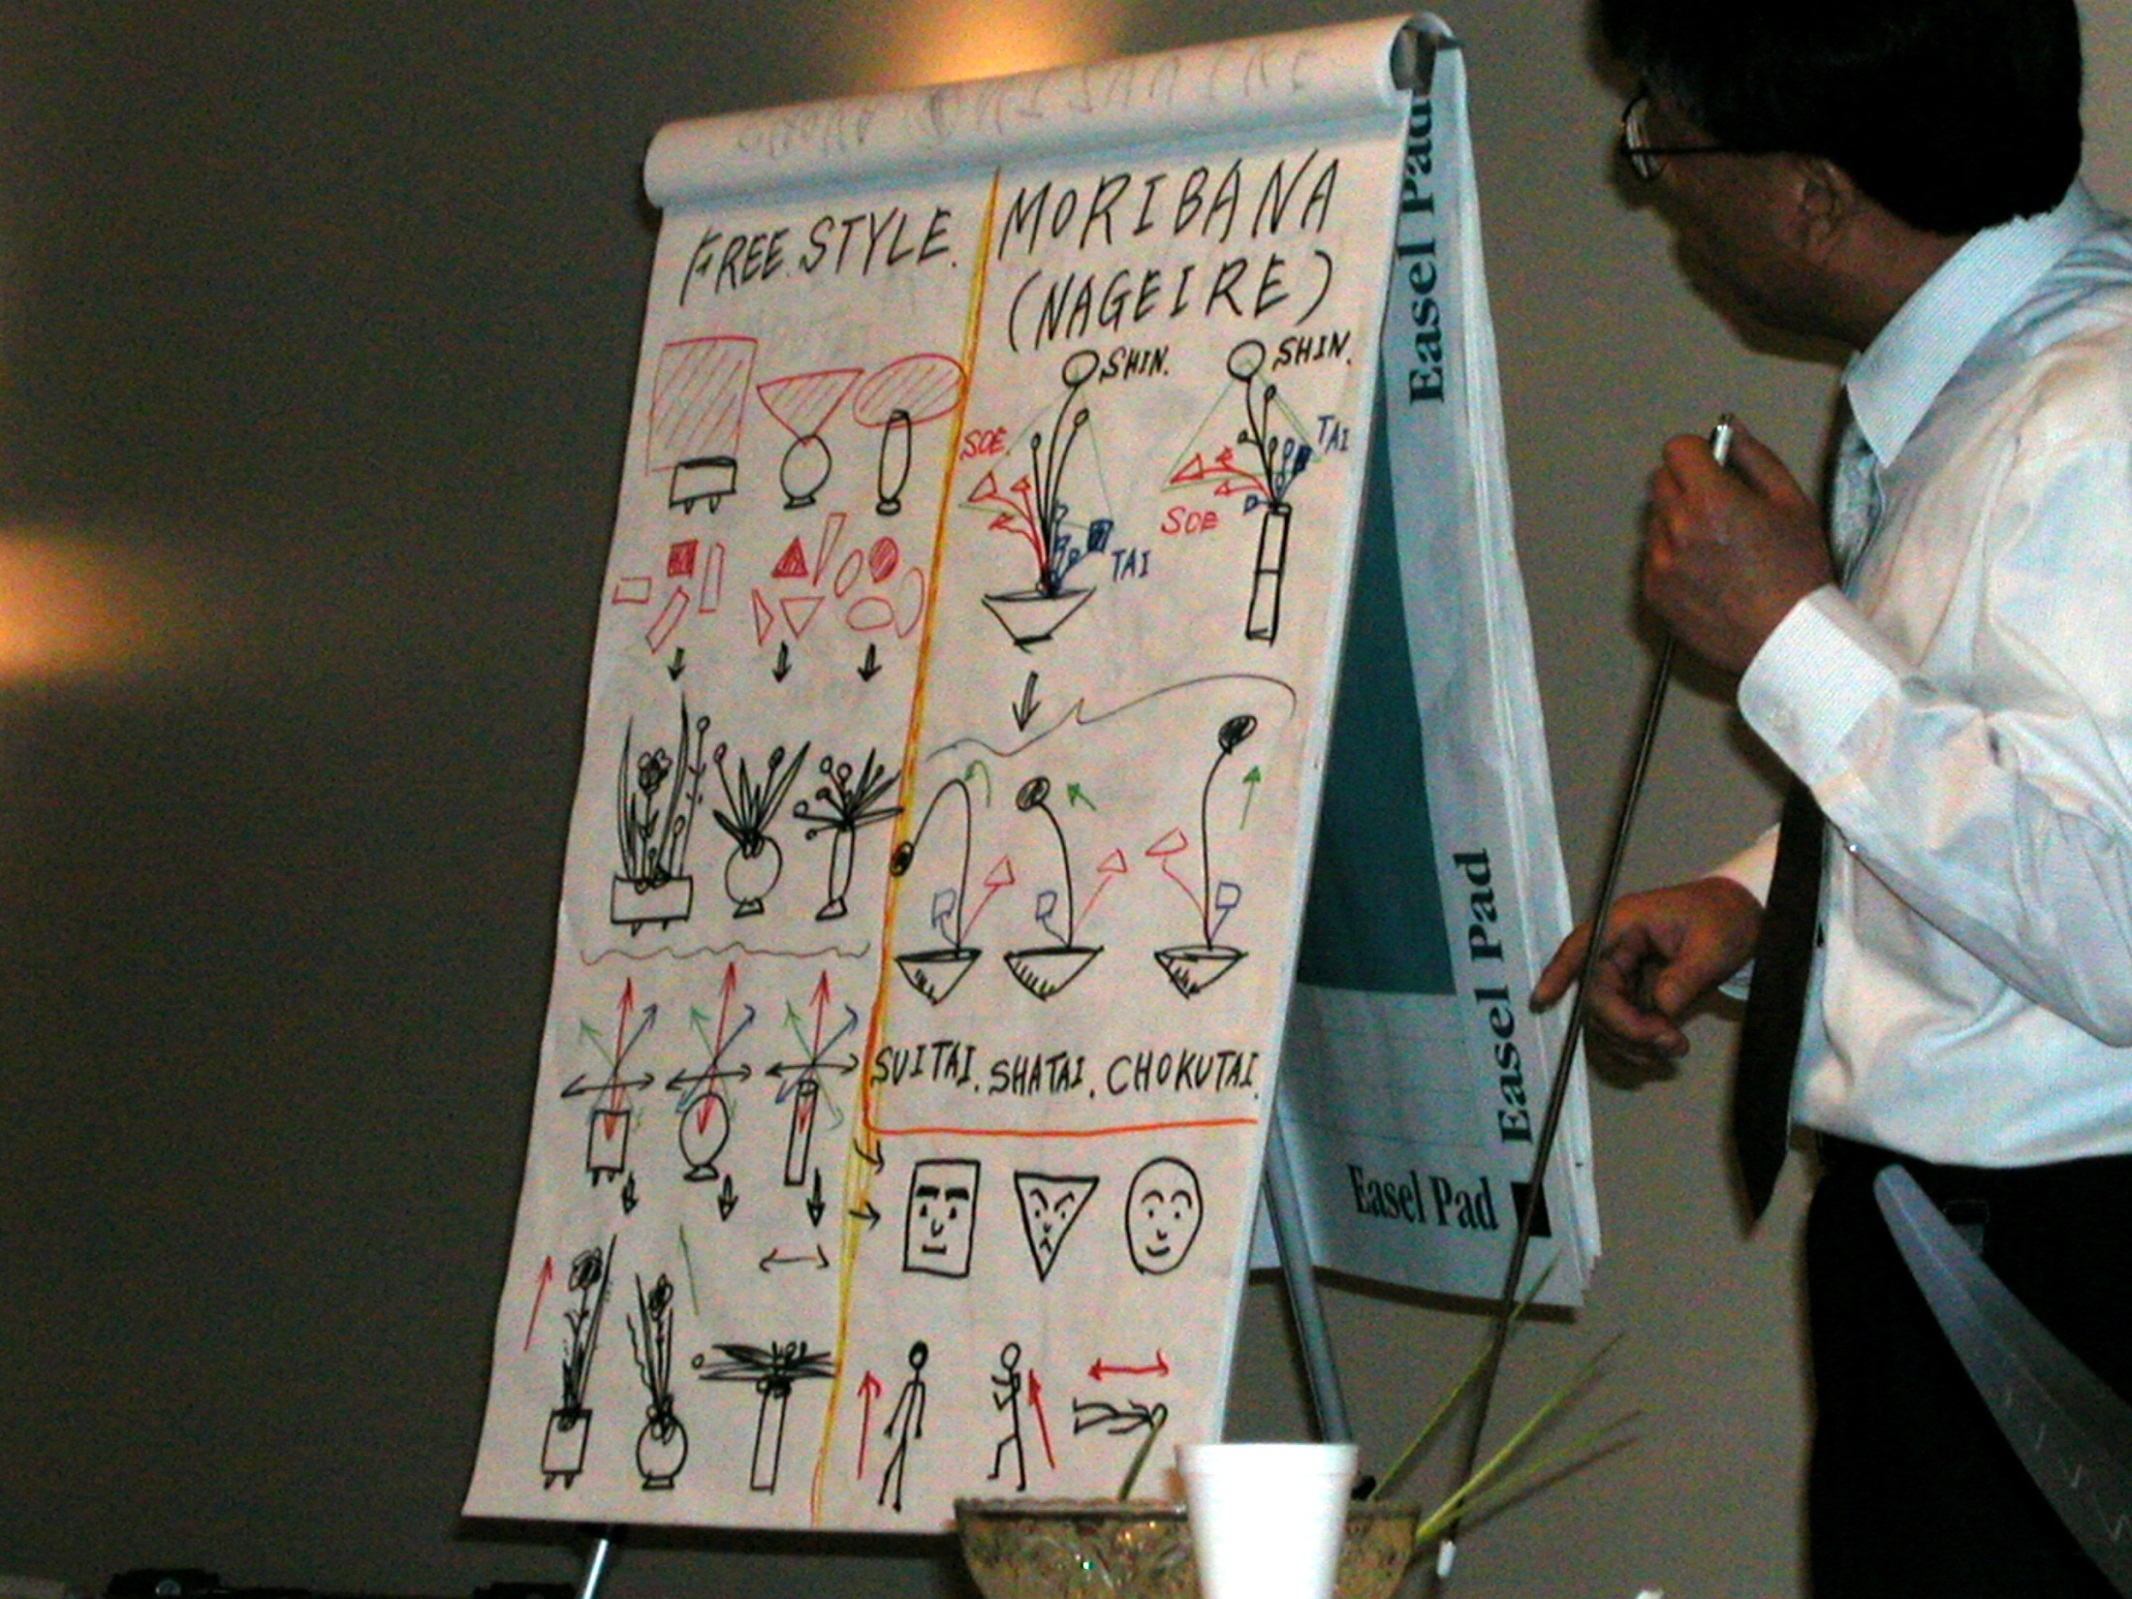 FREE STYLE.
MORIBANA
(NAGEIRE)
SHIN.
SHIN.
SOE.
TAI
TAI
SOE
SUITAI. SHATAI. CHOKUTAI.
Easel Pad
Easel Pad
Easel Pad
Easel Pad